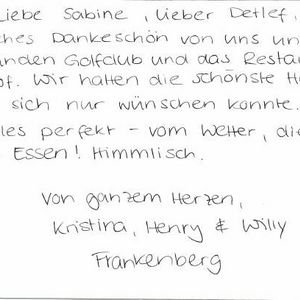 Liebe Sabine, lieber Detlef,
ches Dankeschön von uns un
nden Golfclub und das Resta
of. Wir hatten die schönste H
sich nur wünschen konnte.
les perfekt - vom Wetter, die
Essen! Himmlisch.
Von ganzem Herzen,
Kristina, Henry & Willy
Frankenberg